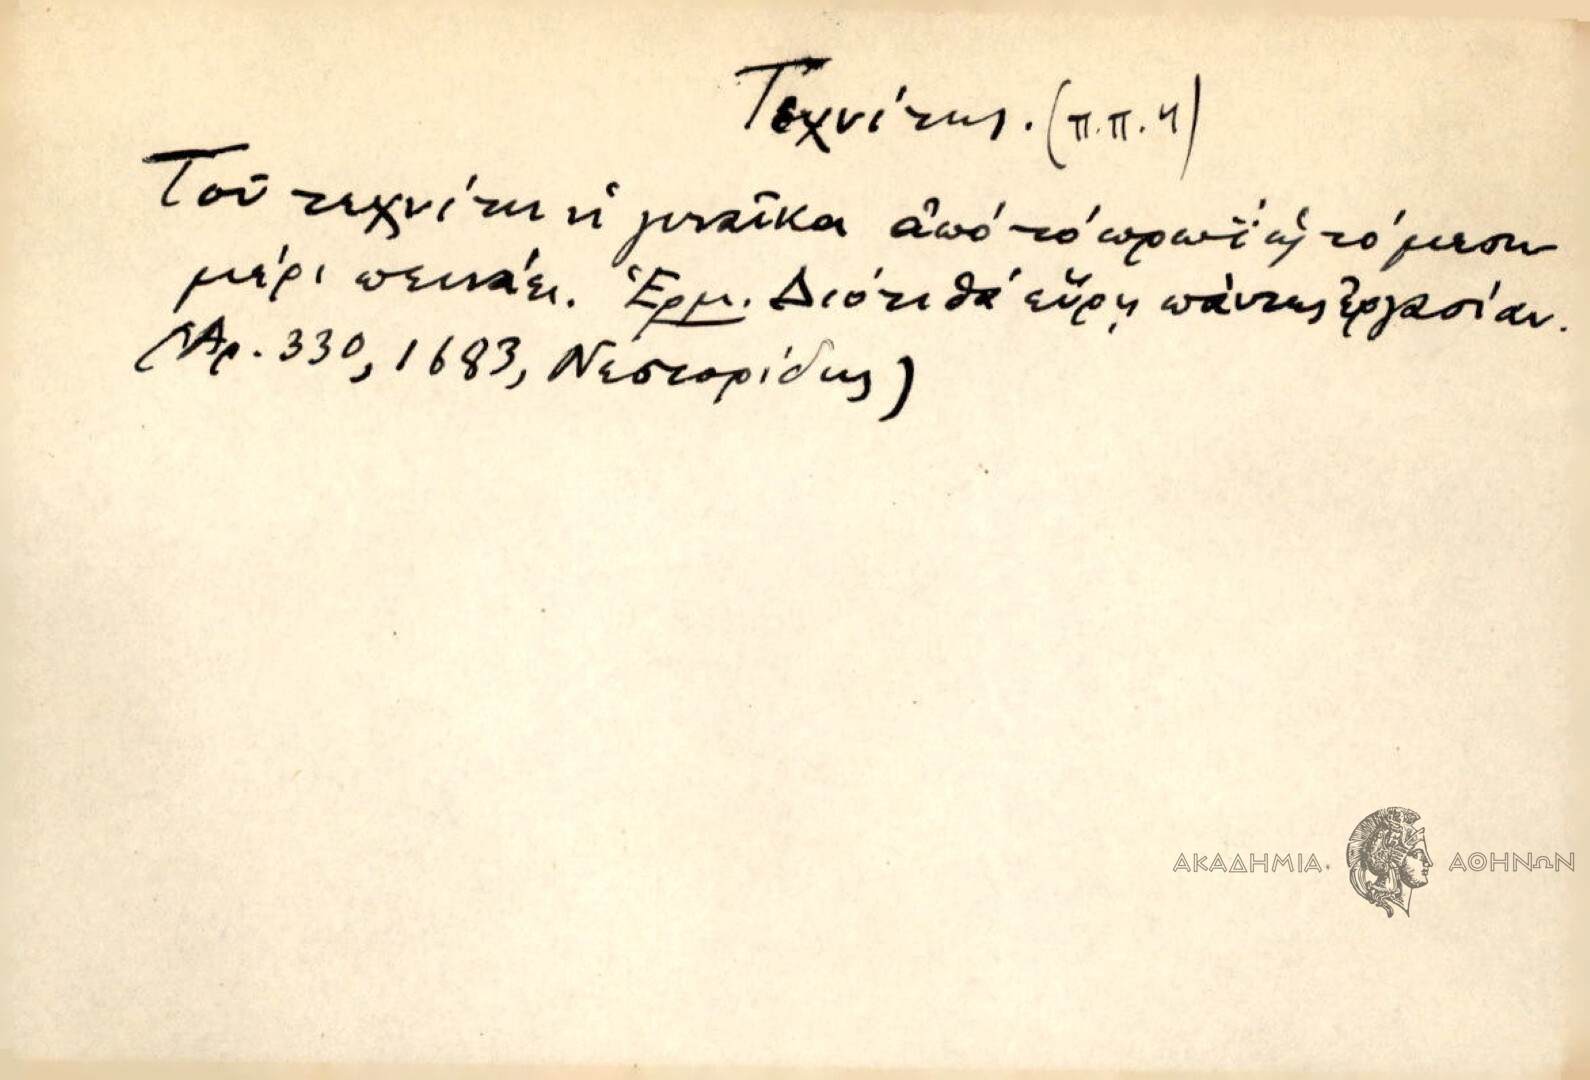 Τεχνίτης. (π.π. 4)
Τοῦ τεχνίτη ἡ γυναῖκα ἀπό τό πρωΐ ὥς τό μεση
μέρι πεινάει. Ἑρμ. Διότι θά εὕρῃ πάντως ἐργασίαν.
(Ἀρ. 330, 1683, Νεστορίδης)
ΑΚΑΔΗΜΙΑ ΑΘΗΝΩΝ